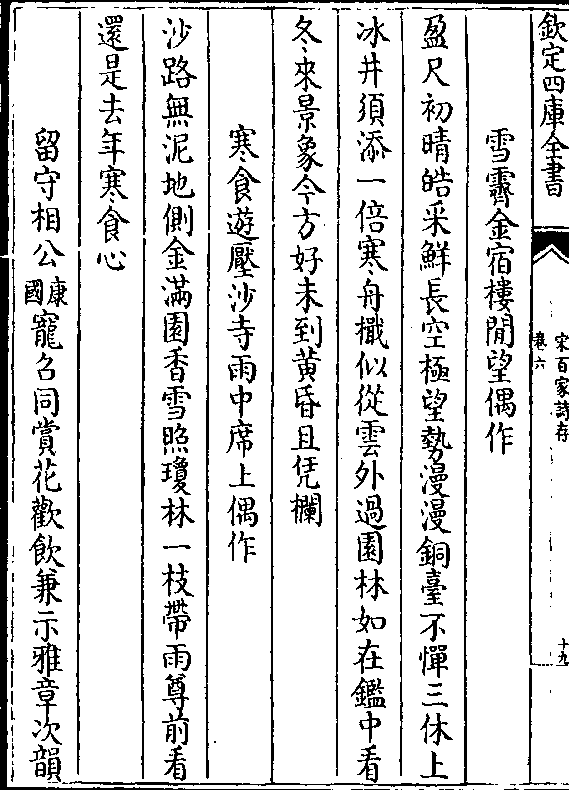 欽定四庫全書
宋百家詩存
卷六
十九
雪霽金宿樓閒望偶作
盈尺初晴皓采鮮長空極望勢漫漫銅臺不憚三休上
冰井須添一倍寒舟檝似從雲外過園林如在鑑中看
冬來景象今方好未到黄昏且凭欄
寒食遊壓沙寺雨中席上偶作
沙路無泥地側金滿園香雪照瓊林一枝帶雨尊前看
還是去年寒食心
留守相公康國寵召同賞花歡飲兼示雅章次韻